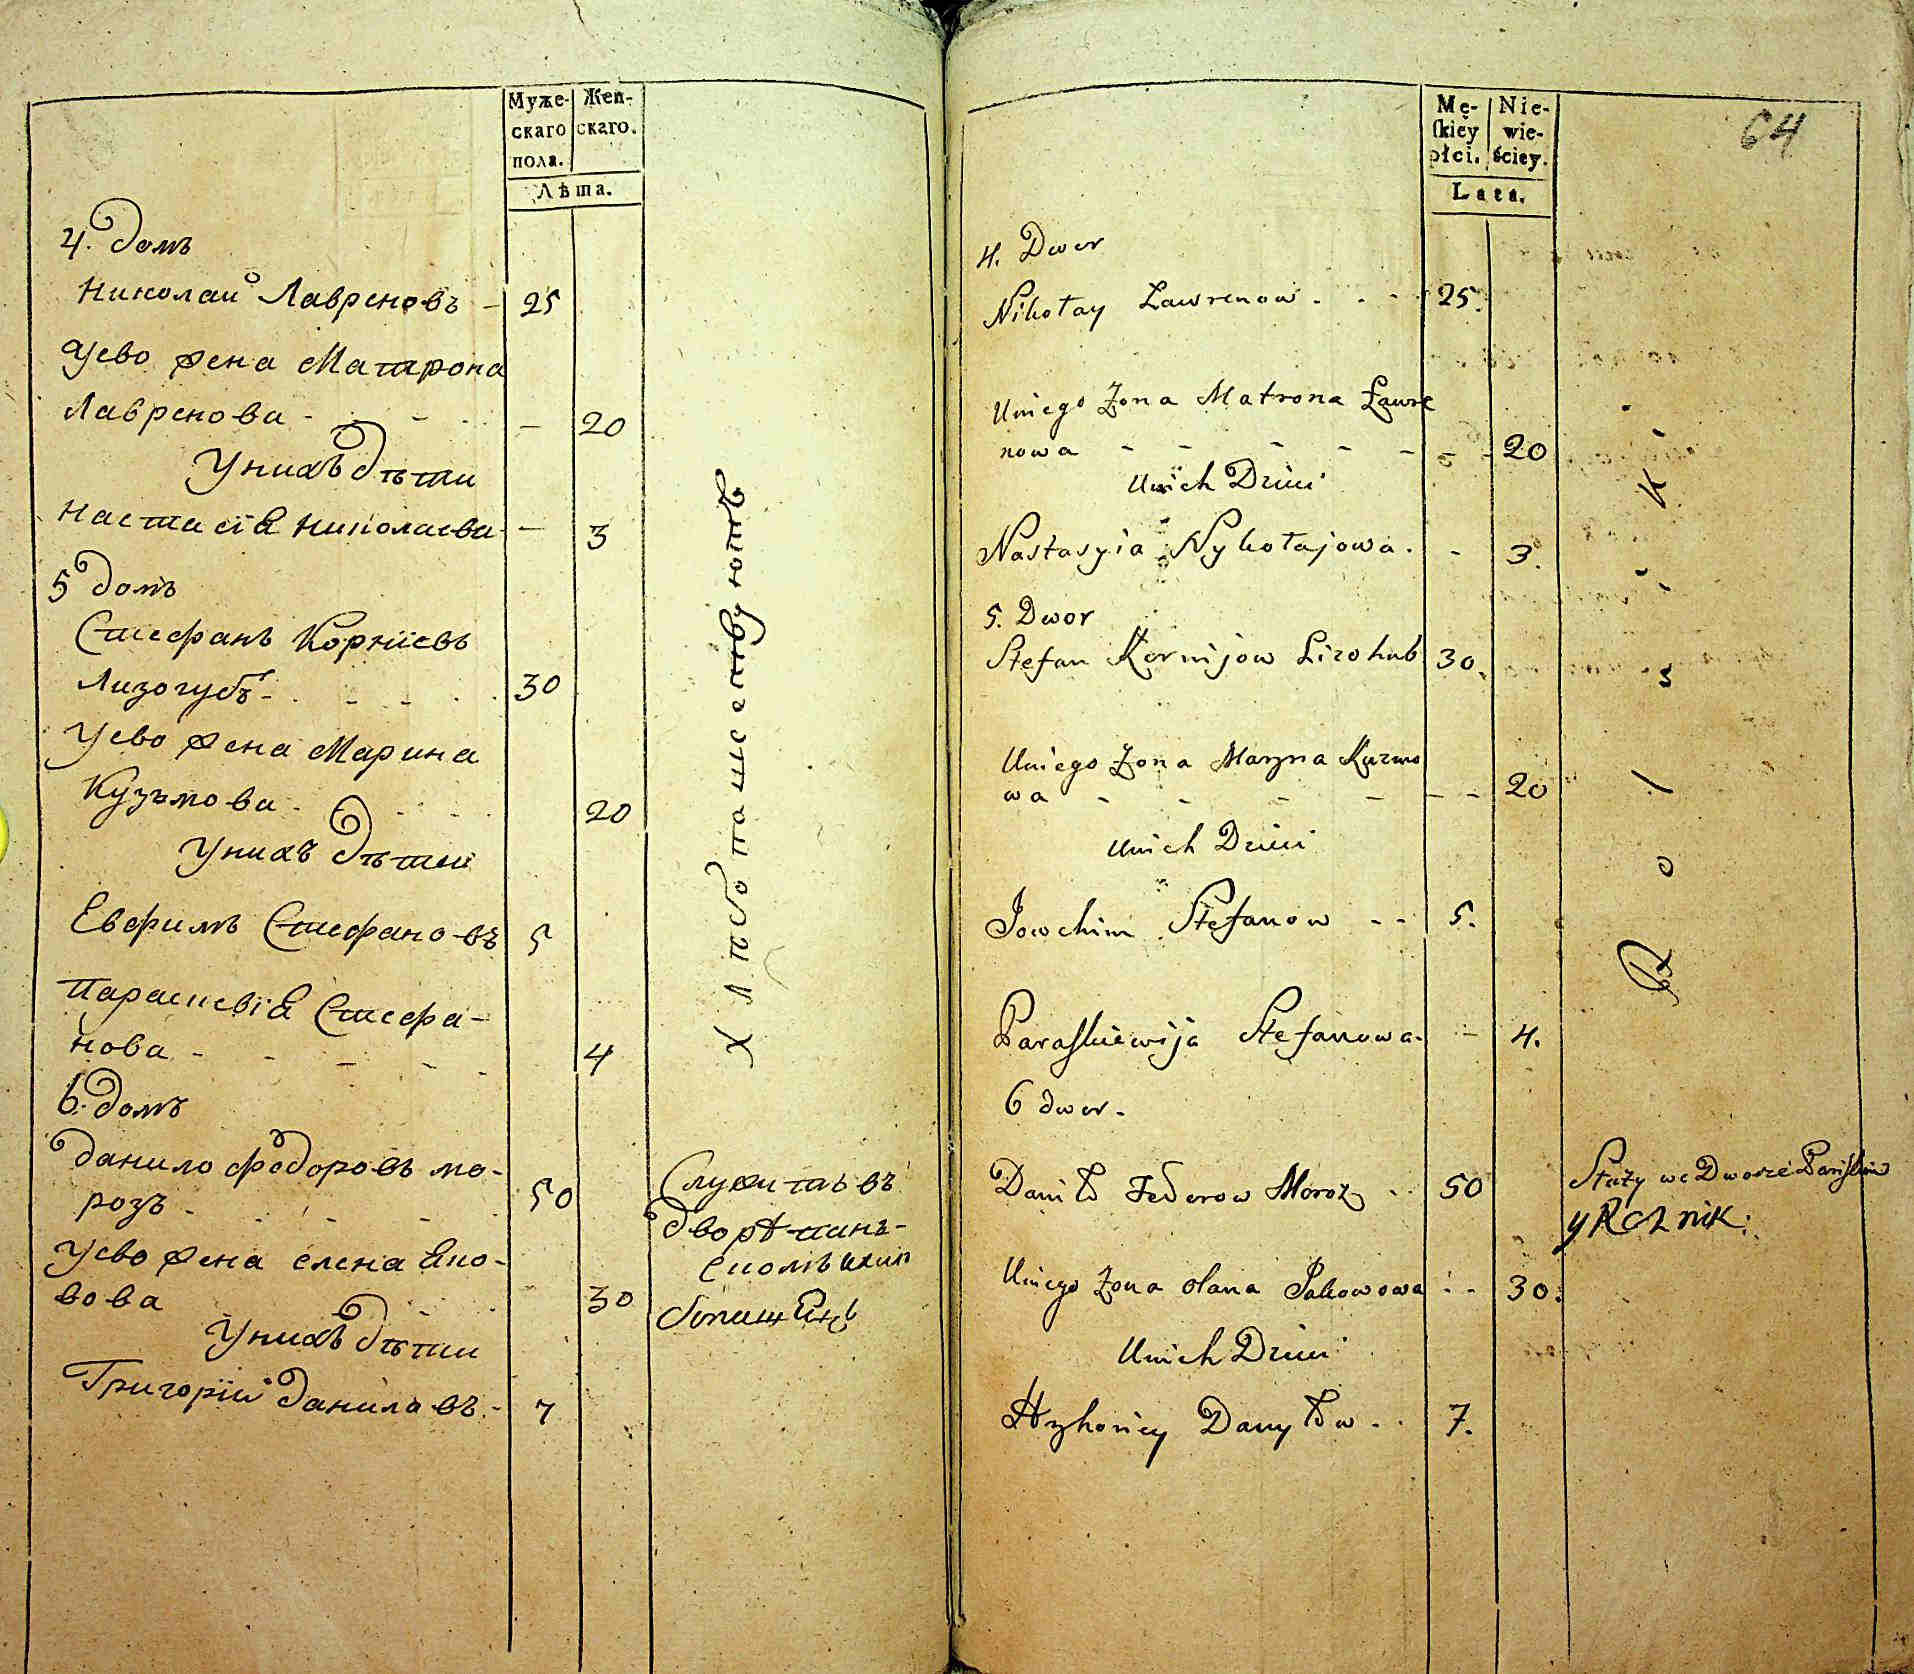 Муже-
скаго
пола.
Жен-
скаго.
Лѣта.
4. Домъ
Николай Лавреновъ - 25
Уево жена Матрона
Лавренова - - - 20
Унихъ дѣти
Настасія Николаева - 3
5 домъ
Стефанъ Корніевъ
Лизогубъ - 30
Уево жена Марина
Кузьмова - 20
Унихъ дѣти
Евфимъ Стефановъ 5
Параскевія Стефа-
нова - - - 4
6. домъ
Данило Фодоровъ мо-
розъ - 50
Уево жена елена Яко-
вова 30
Унихъ дѣти
Григорій Даниловъ - 7
Хлѣбопашествуютъ
Служитъ въ
дворѣ
64
Mę-
skiey
płci.
Nie-
wie-
ściey.
Lata.
4. Dwor
Nikołay Lawrenow - - 25.
Uniego Zona Matrona Ławre
nowa - - - - - 20
Unich Dzieci
Nastasyia Nykołajowa. - 3.
5. Dwor
Stefan Kornijow Lizohub 30.
Uniego Zona Maryna Kuzmo
wa - - - - - - 20
Unich Dzieci
Jowchim Stefanow - - 5.
Paraskiewija Stefanowa. - 4.
6 dwor.
Daniło Fedorow Moroz - 50
Uniego Zona olana Jakowowa - - 30.
Unich Dzieci
Hryhoricy Danyłow - - 7.
Rolniki
Służy we Dworze Pańskim